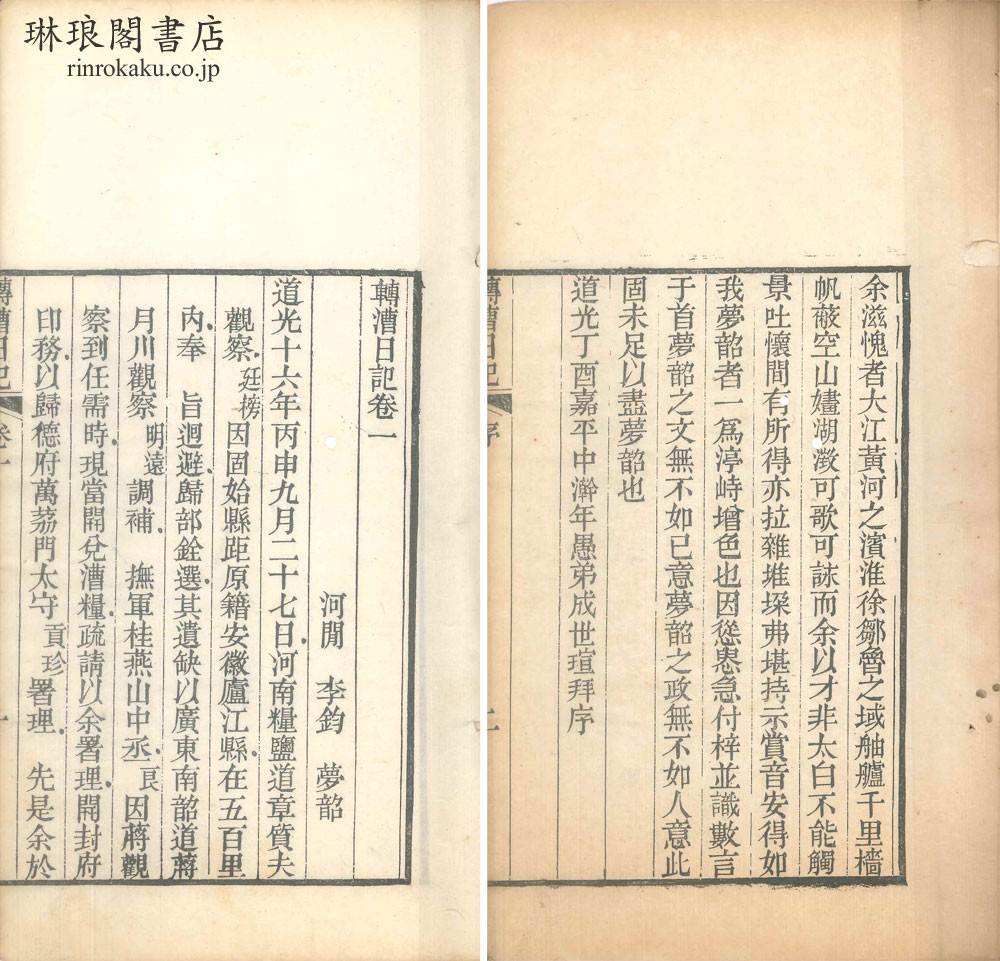 琳琅閣書店
rinrokaku.co.jp
余滋愧者大江黃河之濱淮徐鄒魯之域舳艫千里檣
帆蔽空山嬧湖漵可歌可詠而余以才非太白不能觸
景吐懷間有所得亦拉雜堆垜弗堪持示賞音安得如
我夢韶者一爲渟峙增色也因慫恿急付梓並識數言
于首夢韶之文無不如已意夢韶之政無不如人意此
固未足以盡夢韶也
道光丁酉嘉平中澣年愚弟成世瑄拜序
轉漕日記 序 二
轉漕日記卷一
河閒 李鈞 夢韶
道光十六年丙申九月二十七日河南糧鹽道章質夫
觀察廷榜因固始縣距原籍安徽廬江縣在五百里
內奉 旨迴避歸部銓選其遺缺以廣東南韶道蔣
月川觀察明遠調補 撫軍桂燕山中丞良因蔣觀
察到任需時現當開兌漕糧疏請以余署理開封府
印務以歸德府萬荔門太守貢珍署理 先是余於
轉漕日記 卷一 一